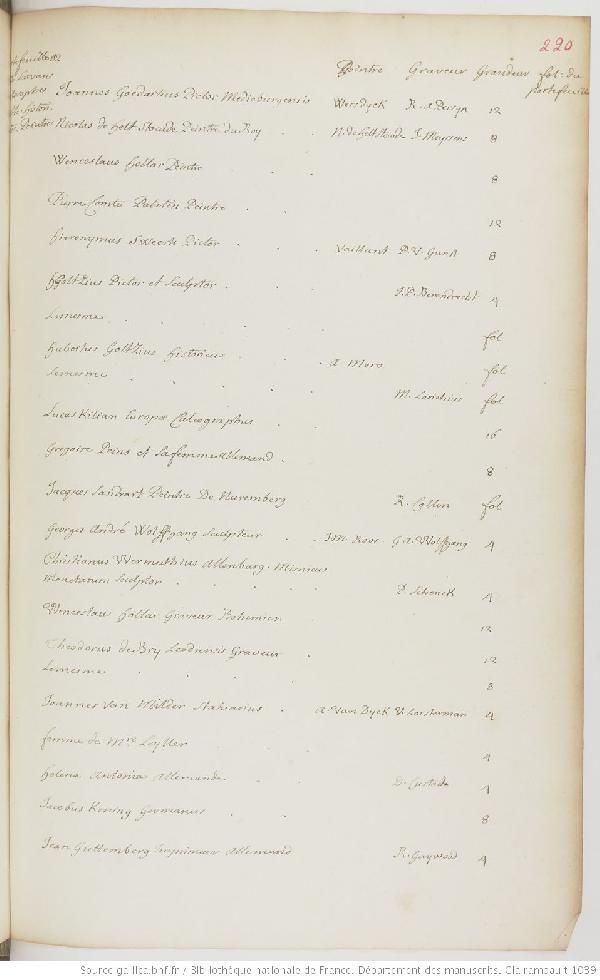 220
Peintre Graveur Grandeur fol. du
portefeuille
Joannes Goedartius Pictor Medioburgensis Wersdyck R. a Persyn 12
Nicolas de helt Stocade Peintre du Roy N. de helt Stocade J. Meyssens 8
Wenceslaus hollar Peintre 8
Pierre Comte Palatin Peintre 12
hieronymus Sweerts Pictor Vaillant P. V. Gunst 8
h Goltzius Pictor et Sculptor J. P. Berendrecht 4
Lemesme fol
hubertus Goltzius historicus A. Moro fol
Lemesme M. Lorichius fol
Lucas Kilian Europæ Chalcographus 16
Gregoire Peins et sa femme allemand 8
Jacques Sandrart Peintre De Nuremberg R. Collin fol
Georges André Wolffgang Sculpteur J. M. Roos G. A. Wolffgang 4
Christianus Wermuthius Altenburg. Misnicus
Monetarum Sculptor P. Schenck 4
Wenceslau hollar Graveur Bohemien 12
Theodorus de Bry Leodiensis Graveur 12
Lemesme 8
Joannes Van Milder Statuarius A. Van Dyck V. Lorsterman 4
femme de Mre Leyller 4
helena Antonia Allemande D. Custode 4
Jacobus Koning Germanus 8
Jean Guttemberg Imprimeur Allemand R. Gaywood 4
Source gallica.bnf.fr / Bibliothèque nationale de France. Département des manuscrits. Clairambault 1039